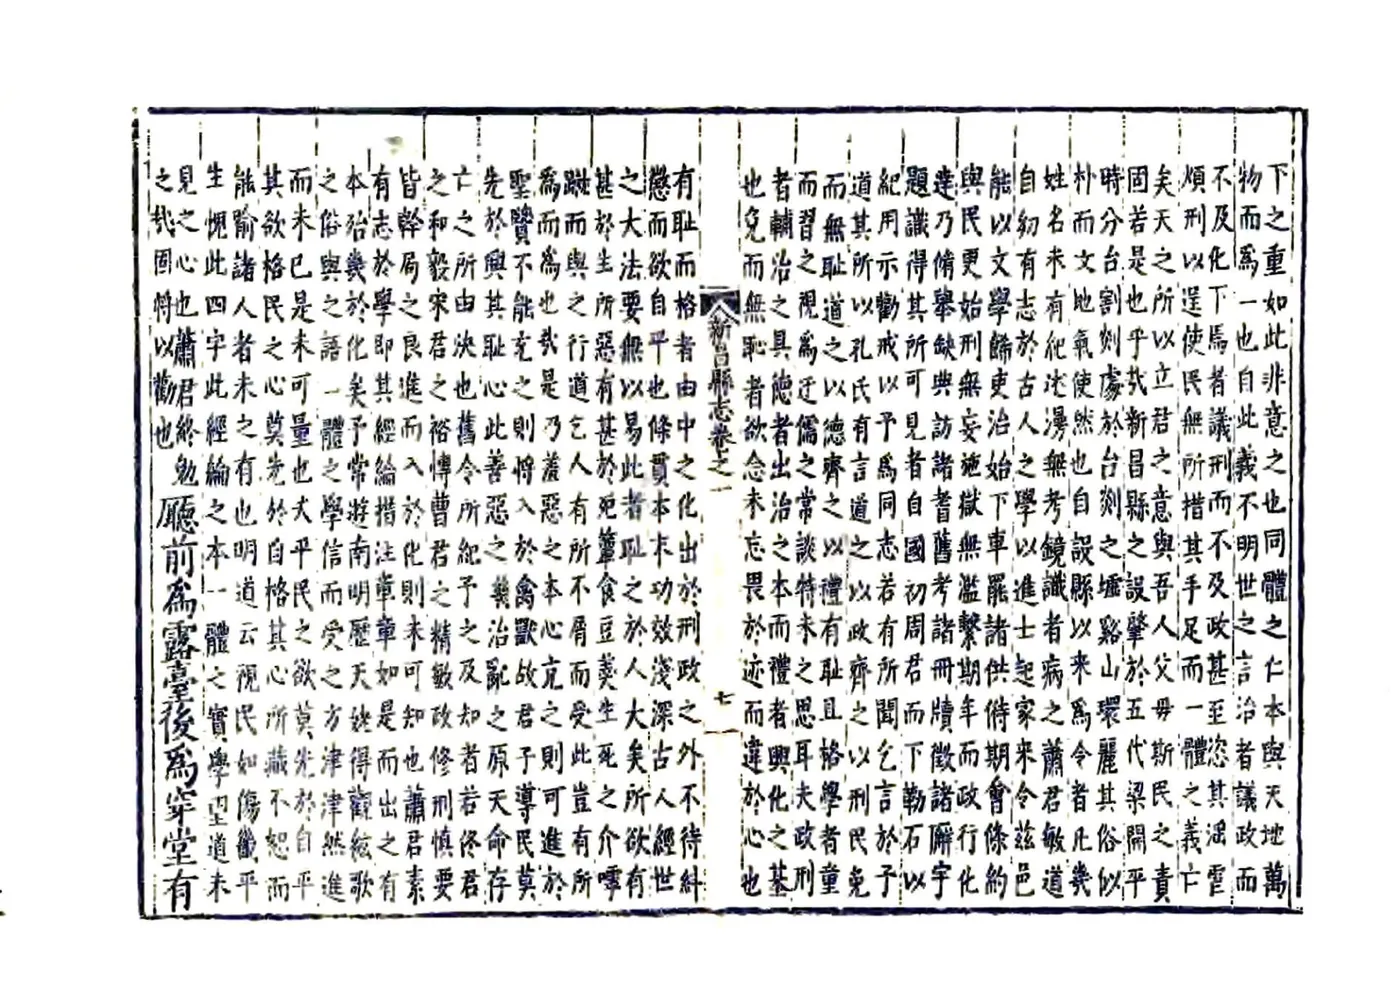 下之重如此非意之也同體之仁本與天地萬
物而爲一也自此義不明世之言治者議政而
不及化下馬者議刑而不及政甚至恣其滛
煩刑以逞使民無所措其手足而一體之義亡
矣天之所以立君之意與吾人父毋斯民之責
固若是也乎㢤新昌縣之設肇於五代梁開平
時分台割剡處於台剡之墟谿山環麗其俗似
朴而文地氣使然也自設縣以来爲令者凡幾
姓名未有紀述漫無考鏡識者病之蕭君敏道
自初有志於古人之學以進士起家来令兹邑
能以文學餙吏治始下車罷諸供偫期會條約
與民更始刑無妄施獄無濫繫期年而政行化
達乃脩舉缺典訪諸耆舊考諸冊牘徵諸廨宇
題識得其所可見者自國初周君而下勒石以
紀用示勸戒以予爲同志若有所聞乞言於予
道其所以孔氏有言道之以政齊之以刑民免
而無耻道之以德齊之以禮有耻且格學者童
而習之視爲迂儒之常談特未之思耳夫政刑
者輔治之具德者出治之本而禮者興化之基
也免而無恥者欲念未忘畏於迹而違於心也
新昌縣志卷之一
七
有耻而格者由中之化出於刑政之外不待糾
懲而欲自平也條貫本末功效淺深古人經世
之大法要無以易此者耻之於人大矣所欲有
甚於生所惡有甚於死簞食豆羹生死之介嘑
蹴而與之行道乞人有所不屑而受此豈有所
爲而爲也㢤是乃羞惡之本心充之則可進於
聖贒不能充之則將入於禽獸故君子導民莫
先於興其耻心此善惡之幾治亂之原天命存
亡之所由决也舊令所紀予之及知者若佟君
之和毅宋君之裕慱曹君之精敏政修刑慎要
皆幹局之良進而入於化則未可知也蕭君素
有志於學即其經綸措注章章如是而出之有
本殆幾於化矣予常遊南明歷天姥得觀絃歌
之俗與之語一體之學信而受之方津津然進
而未巳是未可量也夫平民之欲莫先於自平
其欲格民之心莫先於自格其心所藏不恕而
能喻諸人者未之有也明道云視民如傷㡬平
生愧此四字此經綸之本一體之實學望道未
見之心也蕭君終勉
之㢤固將以勸也 廳前爲露臺後爲穿堂有